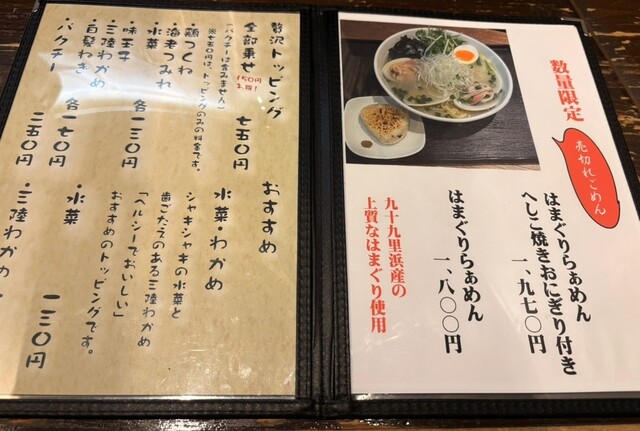 数量限定
売切れごめん
はまぐりらぁめん
へしこ焼きおにぎり付き
一、九七〇円
はまぐりらぁめん
一、八〇〇円
九十九里浜産の
上質なはまぐり使用
贅沢トッピング
全部乗せ
150円
お得!
七五〇円
※七五〇円は、トッピングのみの料金です。
(パクチーは含みません)
・鶏つくね
・海老つみれ
・水菜
各一三〇円
・味玉子
・三陸わかめ
・白髪ねぎ
各一七〇円
・パクチー
二五〇円
おすすめ
水菜・わかめ
シャキシャキの水菜と
歯ごたえのある三陸わかめ
「ヘルシーでおいしい」
おすすめのトッピングです。
・水菜
一三〇円
・三陸わかめ